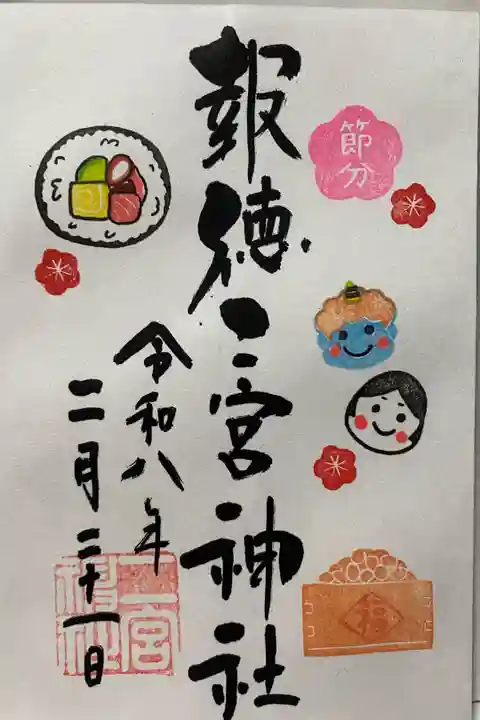 節分
報徳二宮神社
令和八年
二月二十一日
福
二宮
神社